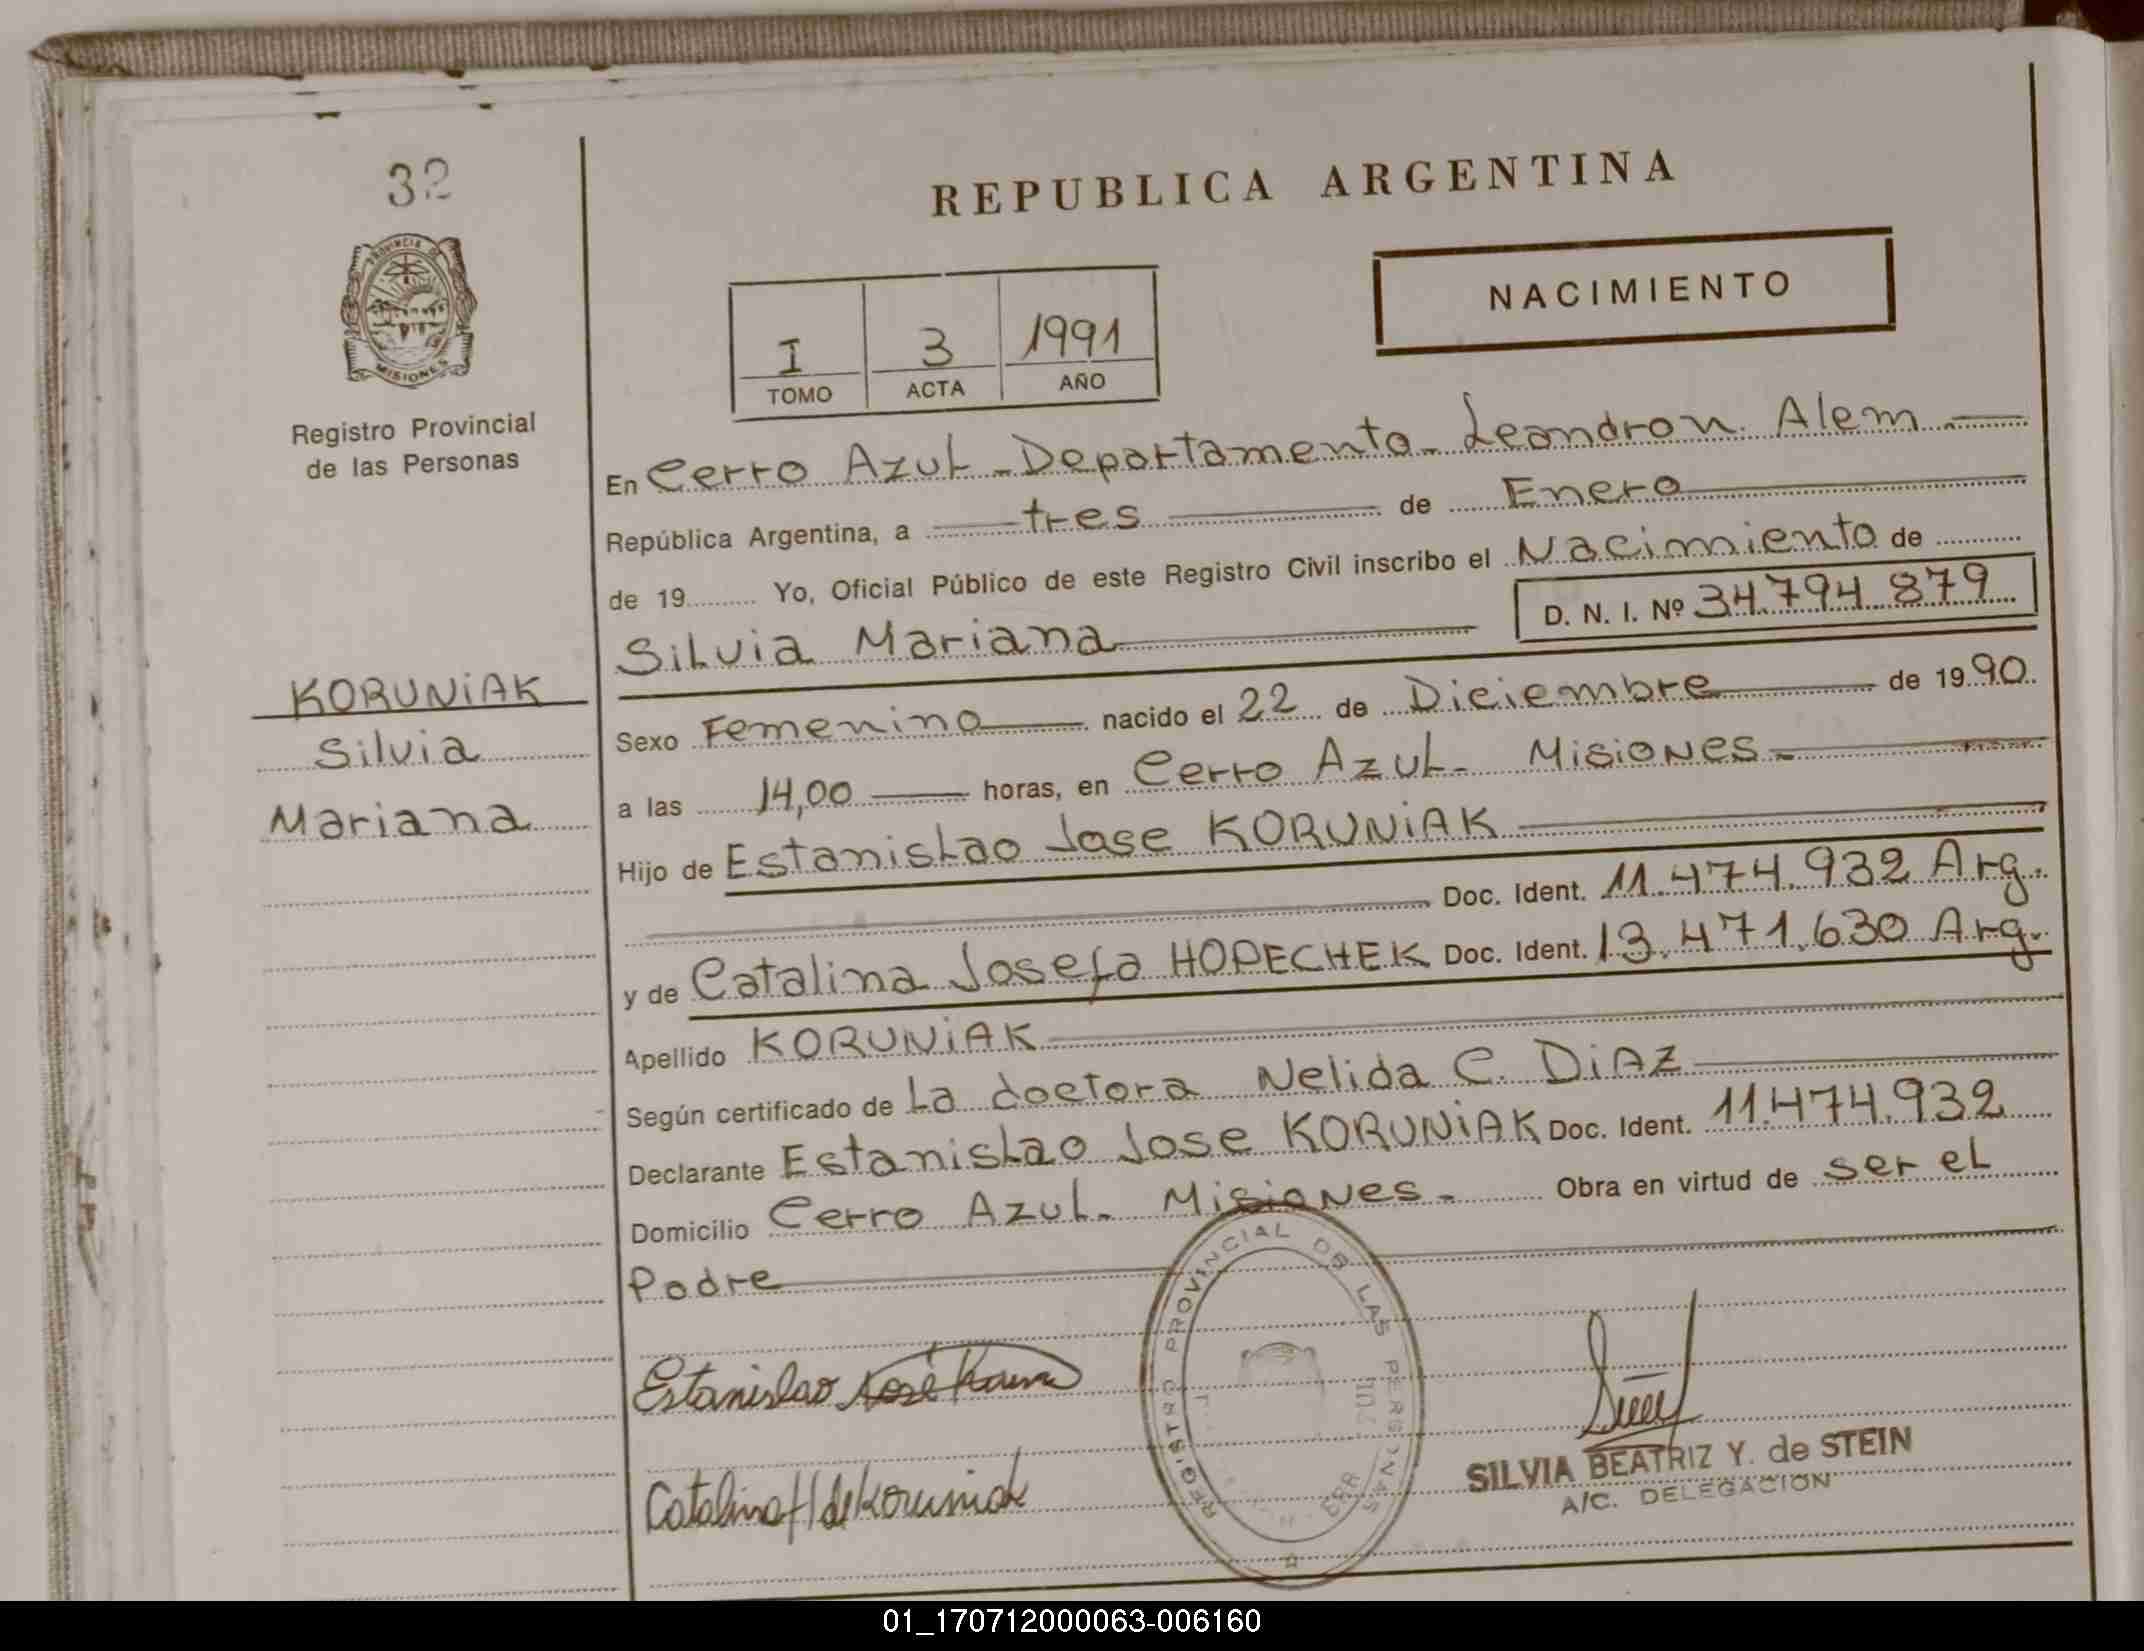 32
REPUBLICA ARGENTINA
PROVINCIA DE
MISIONES
NACIMIENTO
I 3 1991
TOMO ACTA AÑO
Registro Provincial
de las Personas
En Cerro Azul - Departamento - Leandro N. Alem
República Argentina, a tres de Enero
de 19 Yo, Oficial Público de este Registro Civil inscribo el Nacimiento de
Silvia Mariana D. N. I. Nº 34794879
KORUNiAK
Silvia
Mariana
Sexo Femenino nacido el 22 de Diciembre de 1990
a las 14,00 horas, en Cerro Azul - Misiones -
Hijo de Estanislao Jose KORUNiAK
Doc. Ident. 11.474.932 Arg.
y de Catalina Josefa HOPECHEK Doc. Ident. 13.471.630 Arg.
Apellido KORUNiAK
Según certificado de La doctora Nelida C. DiAZ
Declarante Estanislao Jose KORUNiAK Doc. Ident. 11.474.932
Domicilio Cerro Azul - Misiones - Obra en virtud de ser el
Padre
REGISTRO PROVINCIAL DE LAS PERSONAS
Estanislao José
Catalina H de Koruniak
SILVIA BEATRIZ Y. de STEIN
A/C. DELEGACION
01_170712000063-006160